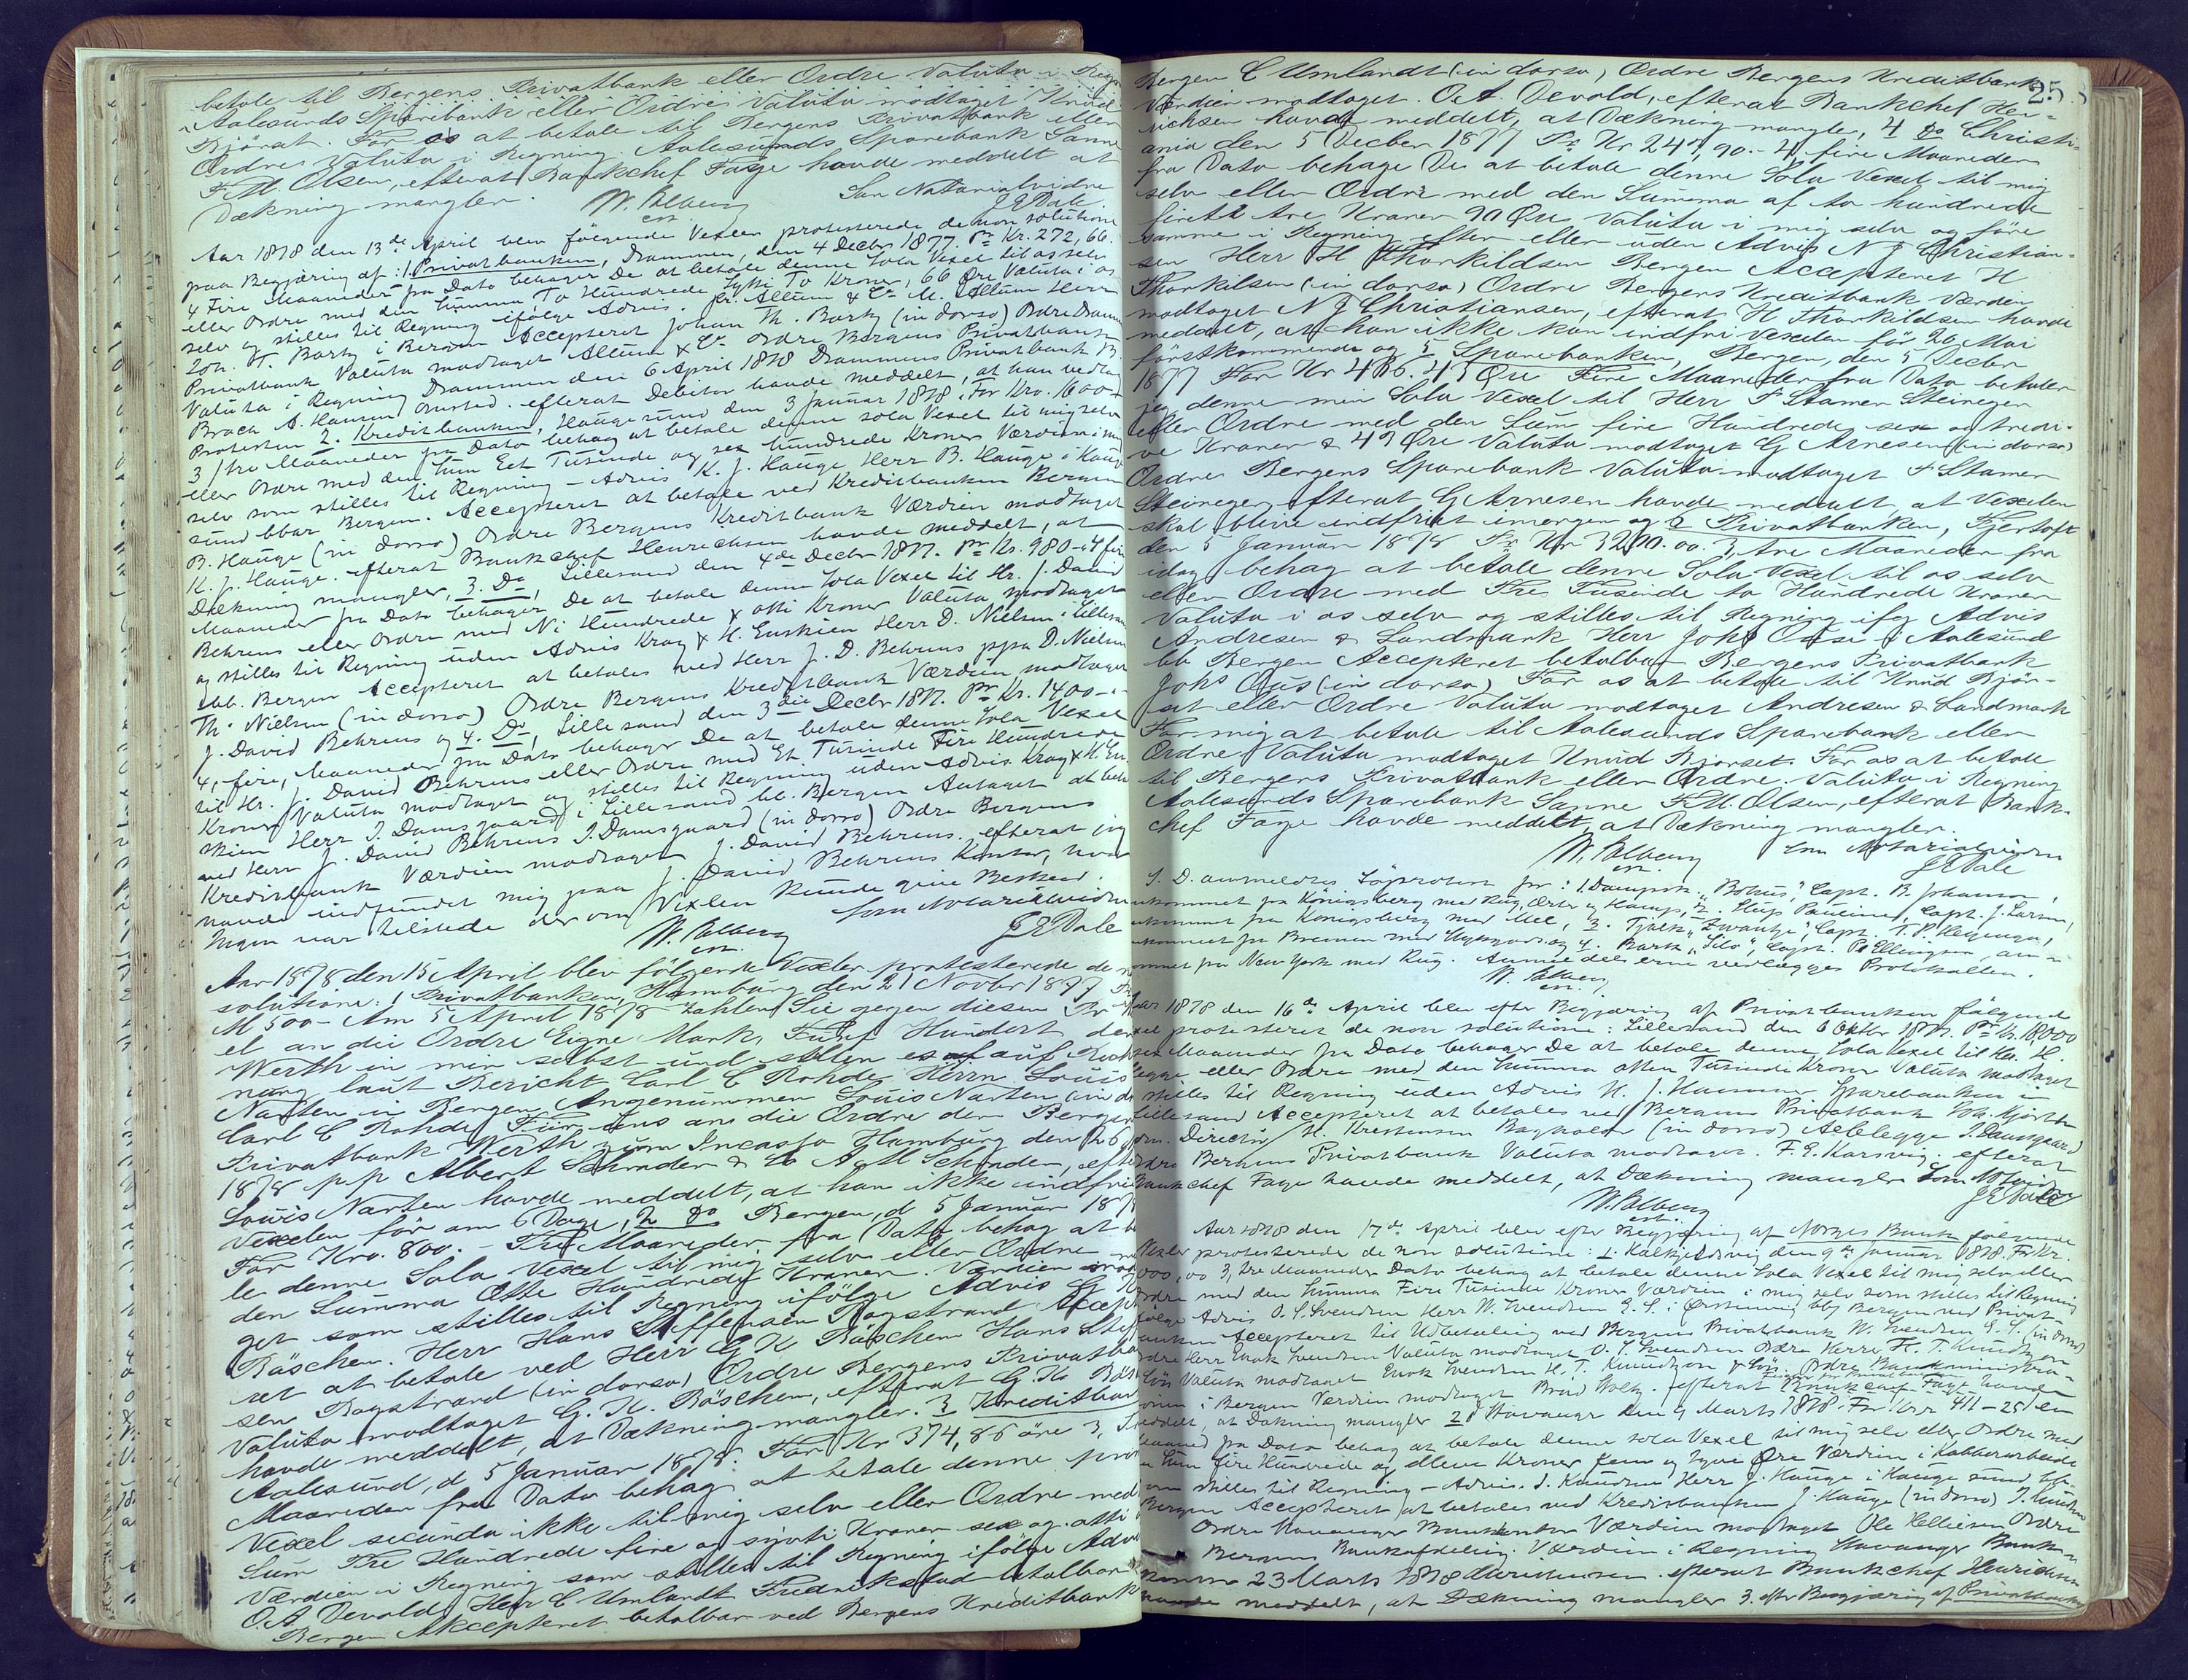 betale til Bergens Privatbank eller Ordre Valuta i Regn
Aalesunds Sparebank eller Ordre Valuta modtaget Knud
Bjørset. For os at betale til Bergens Privatbank eller
Ordre Valuta i Regning. Aalesunds Sparebank Sanne
F. M. Olsen, efterat Bankchef Faye havde meddelt at
Dækning mangler.
W. Ahlberg Som Notarialvidne
est. J E Dale.
Aar 1878 den 13de April blev følgende Vexler protesterede de non solutione
paa Begjæring af: 1. Privatbanken, Drammen, den 4 Decbr 1877. Pr Kr. 272,66.
4 Fire Maaneder fra Dato behager De at betale denne Sola Vexel til os selv
eller Ordre med den Summa To Hundrede Sytti To Kroner, 66 Øre Valuta i os
selv og stilles til Regning ifølge Advis. pr. Altum & Co M. Altum Herr
Joh. T. Barty i Bergen Accepteret Johan Th. Barty (in dorso) Ordre Dramm
Privatbank Valuta modtaget Altum & Co Ordre Bergens Privatbank
Valuta i Regning Drammen den 6 April 1878 Drammens Privatbank B.
Brock A. Hansen Omsted. efterat Debitor havde meddelt, at han vedtog
Protesten 2. Kreditbanken, Haugesund den 3 Januar 1878. For Kro. 1600-
3/tre Maaneder fra Dato behag at betale denne sola Vexel til mig selv
eller Ordre med den Sum Eet Tusinde og sex hundrede Kroner Værdien i mig
selv som stilles til Regning - Advis K. J. Hauge Herr B. Hauge i Hauge
sund bbar Bergen. Accepteret at betale ved Kreditbanken Bergen
B. Hauge (in dorso) Ordre Bergens Kreditbank Værdien modtaget
K. J. Hauge. efterat Bankchef Henrichsen havde meddelt, at
Dækning mangler, 3. Do, Lillesand den 4de Decbr 1877. Pr Kr. 980 - 4 fire
Maaneder fra Dato behager De at betale denne Sola Vexel til Hr. J. David
Behrens eller Ordre med Ni Hundrede & otti Kroner Valuta modtaget
og stilles til Regning uden Advis Krag & H. Enskien Herr D. Nielsen i Lillesand
bb. Bergen Accepteret at betales ved Herr J. D. Behrens ppa D. Nielsen
Th. Nielsen (in dorso) Ordre Bergens Kreditbank Værdien modtaget
J. David Behrens og 4. Do, Lillesand den 3die Decbr 1877. Pr Kr. 1400 -
4, fire, Maaneder fra Dato behager De at betale denne Sola Vexel
til Hr. J. David Behrens eller Ordre med Et Tusinde Fire Hundrede
Kroner Valuta modtaget og stilles til Regning uden Advis Krag & H. En
skien Herr I. Damsgaard i Lillesand bb. Bergen Antaget at beta
ved Herr J. David Behrens I. Damsgaard (in dorso) Ordre Bergens
Kreditbank Værdien modtaget J. David Behrens. efterat jeg
havde indfundet mig paa J. David Behrens Kontor, hvor
Ingen var tilstede der om Vexlen kunde give Besked.
W. Ahlberg Som Notarialvidne
est. J E Dale
Aar 1878 den 15 April blev følgende Vexler protesterede de non
solutione: 1 Privatbanken, Hamburg den 21 Novbr 1877 Pr
M 500 - Am 5 April 1878 zahlen Sie gegen diesen Pr
el an die Ordre Eigne Mark, Fünf Hundert den
Werth in mir selbst und stellen es auf Rech
nung laut Bericht Carl C Rohde Herrn Louis
Narten in Bergen Angenummen Louis Narten (in do
Carl C Rohde Für uns an die Ordre der Bergens
Privatbank Werth zum Incasso Hamburg den 26
1878 p.p Albert Schrader & Co A M Schrader, efte
Louis Narten havde meddelt, at han ikke indfrie
Vexelen før om 6 Dage, 2 do Bergen, d 5 Januar 1878
For Kro. 800. - Tre Maaneder fra Dato behag at beta
le denne Sola Vexel til mig selv eller Ordre med
den Summa Otte Hundrede Kroner. Værdien modta
get som stilles til Regning ifølge Advis G K
Bäschen. Herr Hans Steffensen Rogstrand Accepte
ret at betale ved Herr G K Bäschen Hans Stef
sen Rogstrand (in dorso) Ordre Bergens Privatbank
Valuta modtaget G. K. Bäschen, efterat G. K. Bäs
havde meddelt, at Dækning mangler. 3 Kreditbank
Aalesund, d 5 Januar 1878. For Kr 374,86 øre 3, Tre
Maaneder fra Dato behag at betale denne prima
Vexel secunda ikke til mig selv eller Ordre med
Sum Tre Hundrede fire og sytti Kroner sex og otti
Værdien i Regning som stilles til Regning ifølge Advis
O. A. Devold Herr C Umlandt Fredrikstad betalbar
Bergen Akcepteret betalbar ved Bergens Kreditbank
25
Bergen C Umlandt (in dorso) Ordre Bergens Kreditbank
Værdien modtaget. O. A. Devold, efterat Bankchef Hen-
richsen havde meddelt, at Dækning mangler, 4 do Christi-
ania den 5 Decber 1877 Pr. Kr 243,90.- 4, fire Maaneder
fra Dato behage De at betale denne Sola Vexel til mig
selv eller Ordre med den Summa af to hundrede
firetti tre Kroner 90 Øre Valuta i mig selv og føre
samme i Regning efter eller uden Advis N J Christian-
sen Herr H Thorkildsen Bergen Accepteret H
Thorkilsen (in dorso) Ordre Bergens Kreditbank Værdien
modtaget N J Christiansen, efterat H Thorkildsen havde
meddelt, at han ikke kan indfri Vexelen før 20 Mai
førstkommende og 5 Sparebanken, Bergen, den 5 Decbr
1877 For Kr 436.45 Øre Fire Maaneder fra Dato betaler
jeg denne min Sola Vexel til Herr F Stamer Steineger
eller Ordre med den Sum fire Hundrede sex og tredi-
ve Kroner & 45 Øre Valuta modtaget G Arnesen (in dorso)
Ordre Bergens Sparebank Valuta modtaget F Stamer
Steineger, efterat G Arnesen havde meddelt, at Vexelen
skal blive indfriet imorgen og 6 Privatbanken, Fjertoft
den 5 Januar 1878 Pr Kr 3200.00. 3, tre Maaneder fra
idag behag at betale denne Sola Vexel til os selv
eller Ordre med Tre Tusinde to Hundrede Kroner
Valuta i os selv og stilles til Regning ifg Advis
Andresen & Landmark Herr Johs Ouse i Aalesund
bb Bergen Accepteret betalbar Bergens Privatbank
Johs Ous (in dorso) For os at betale til Knud Bjør-
set eller Ordre Valuta modtaget Andresen & Landmark
For mig at betale til Aalesunds Sparebank eller
Ordre Valuta modtaget Knud Bjørset. For os at betale
til Bergens Privatbank eller Ordre. Valuta i Regning
Aalesunds Sparebank Sanne F. M. Olsen, efterat Bank-
chef Faye havde meddelt, at Dækning mangler.
W. Ahlberg Som Notarialvidne
est. J E Dale
S. D. anmeldtes Søprotest for: 1. Dampsk. "Bohus", Capt. B. Johanson,
ankommet fra Königsberg med Rug, Erter og Hamp, 2. Slup Pauline, Capt. J. Larsen,
ankommet fra Königsberg med Mel, 3. Tjalk "Zwantje", Capt. T. P. Heyenga,
ankommet fra Bremen med Stykgods og 4. Bark "Silo", Capt. P. Ellingsen, an-
kommet fra New York med Rug. Anmeldelserne vedlægges Protokollen.
W. Ahlberg
est.
Aar 1878 den 16de April blev efter Begjæring af Privatbanken følgende
Vexel protesteret de non solutione: Lillesand den 6 Oktbr 1877. Pr Kr. 18,000
sex Maaneder fra Dato behager De at betale denne Sola Vexel til Hr. H.
legge eller Ordre med den Summa atten Tusinde Kroner Valuta modtaget
stilles til Regning uden Advis N. J. Hammer Sparebanken i
Lillesand Accepteret at betales ved Bergens Privatbank
adm. Director H. Krestensen Bogholder (in dorso) Aeblegge I. Damsgaard
Ordre Bergens Privatbank Valuta modtaget. F. G. Karsvig. efterat
Bankchef Faye havde meddelt, at Dækning mangler Som Ntvidne
W. Ahlberg J E Dale
est.
Aar 1878 den 17de April blev efter Begjæring af Norges Bank følgende
Vexler protesterede de non solutione: 1. Kalkjeldsvig den 9de Januar 1878. Pr Kr.
000,00 3, tre Maaneder Dato behag at betale denne Sola Vexel til mig selv eller
Ordre med den Summa Fire Tusinde Kroner Værdien i mig selv som stilles til Regning
ifølge Advis O. S. Svendsen Herr W. Svendsen E. S. i Ørstening bb/ Bergen ved Privat-
banken Accepteret til Udbetaling ved Bergens Privatbank W. Svendsen E. S. (in dorso)
Ordre Herr Enok Svendsen Valuta modtaget O. S. Svendsen Ordre Herrer H. T. Knudtzon
& Søn Valuta modtaget Enok Svendsen H. T. Knudtzon & Søn. Ordre Bankadministra-
tionen i Bergen Værdien modtaget Brød Volt. efterat Bankchef Faye havde
meddelt, at Dækning mangler 2. Stavanger den 9 Marts 1878. For Kr 411 - 25 en
Maaned fra Dato behag at betale denne sola Vexel til mig selv eller Ordre med
en Sum fire Hundrede og elleve Kroner fem og tyve Øre Værdien i Kobberarbeide
som stilles til Regning - Advis. I. Knudsen Herr J. Hauge i Haugesund bb/
Bergen Accepteret at betales ved Kreditbanken J. Hauge (in dorso) I. Knudsen
Ordre Stavanger Bankkontor Værdien modtaget Ole Helliesen Ordre
Bergens Bankafdeling. Værdien i Regning Stavanger Bank-
kontor 23 Marts 1878 Christiansen. efterat Bankchef Henrichsen
havde meddelt, at Dækning mangler 3. eftr Begjæring af Privatbanken